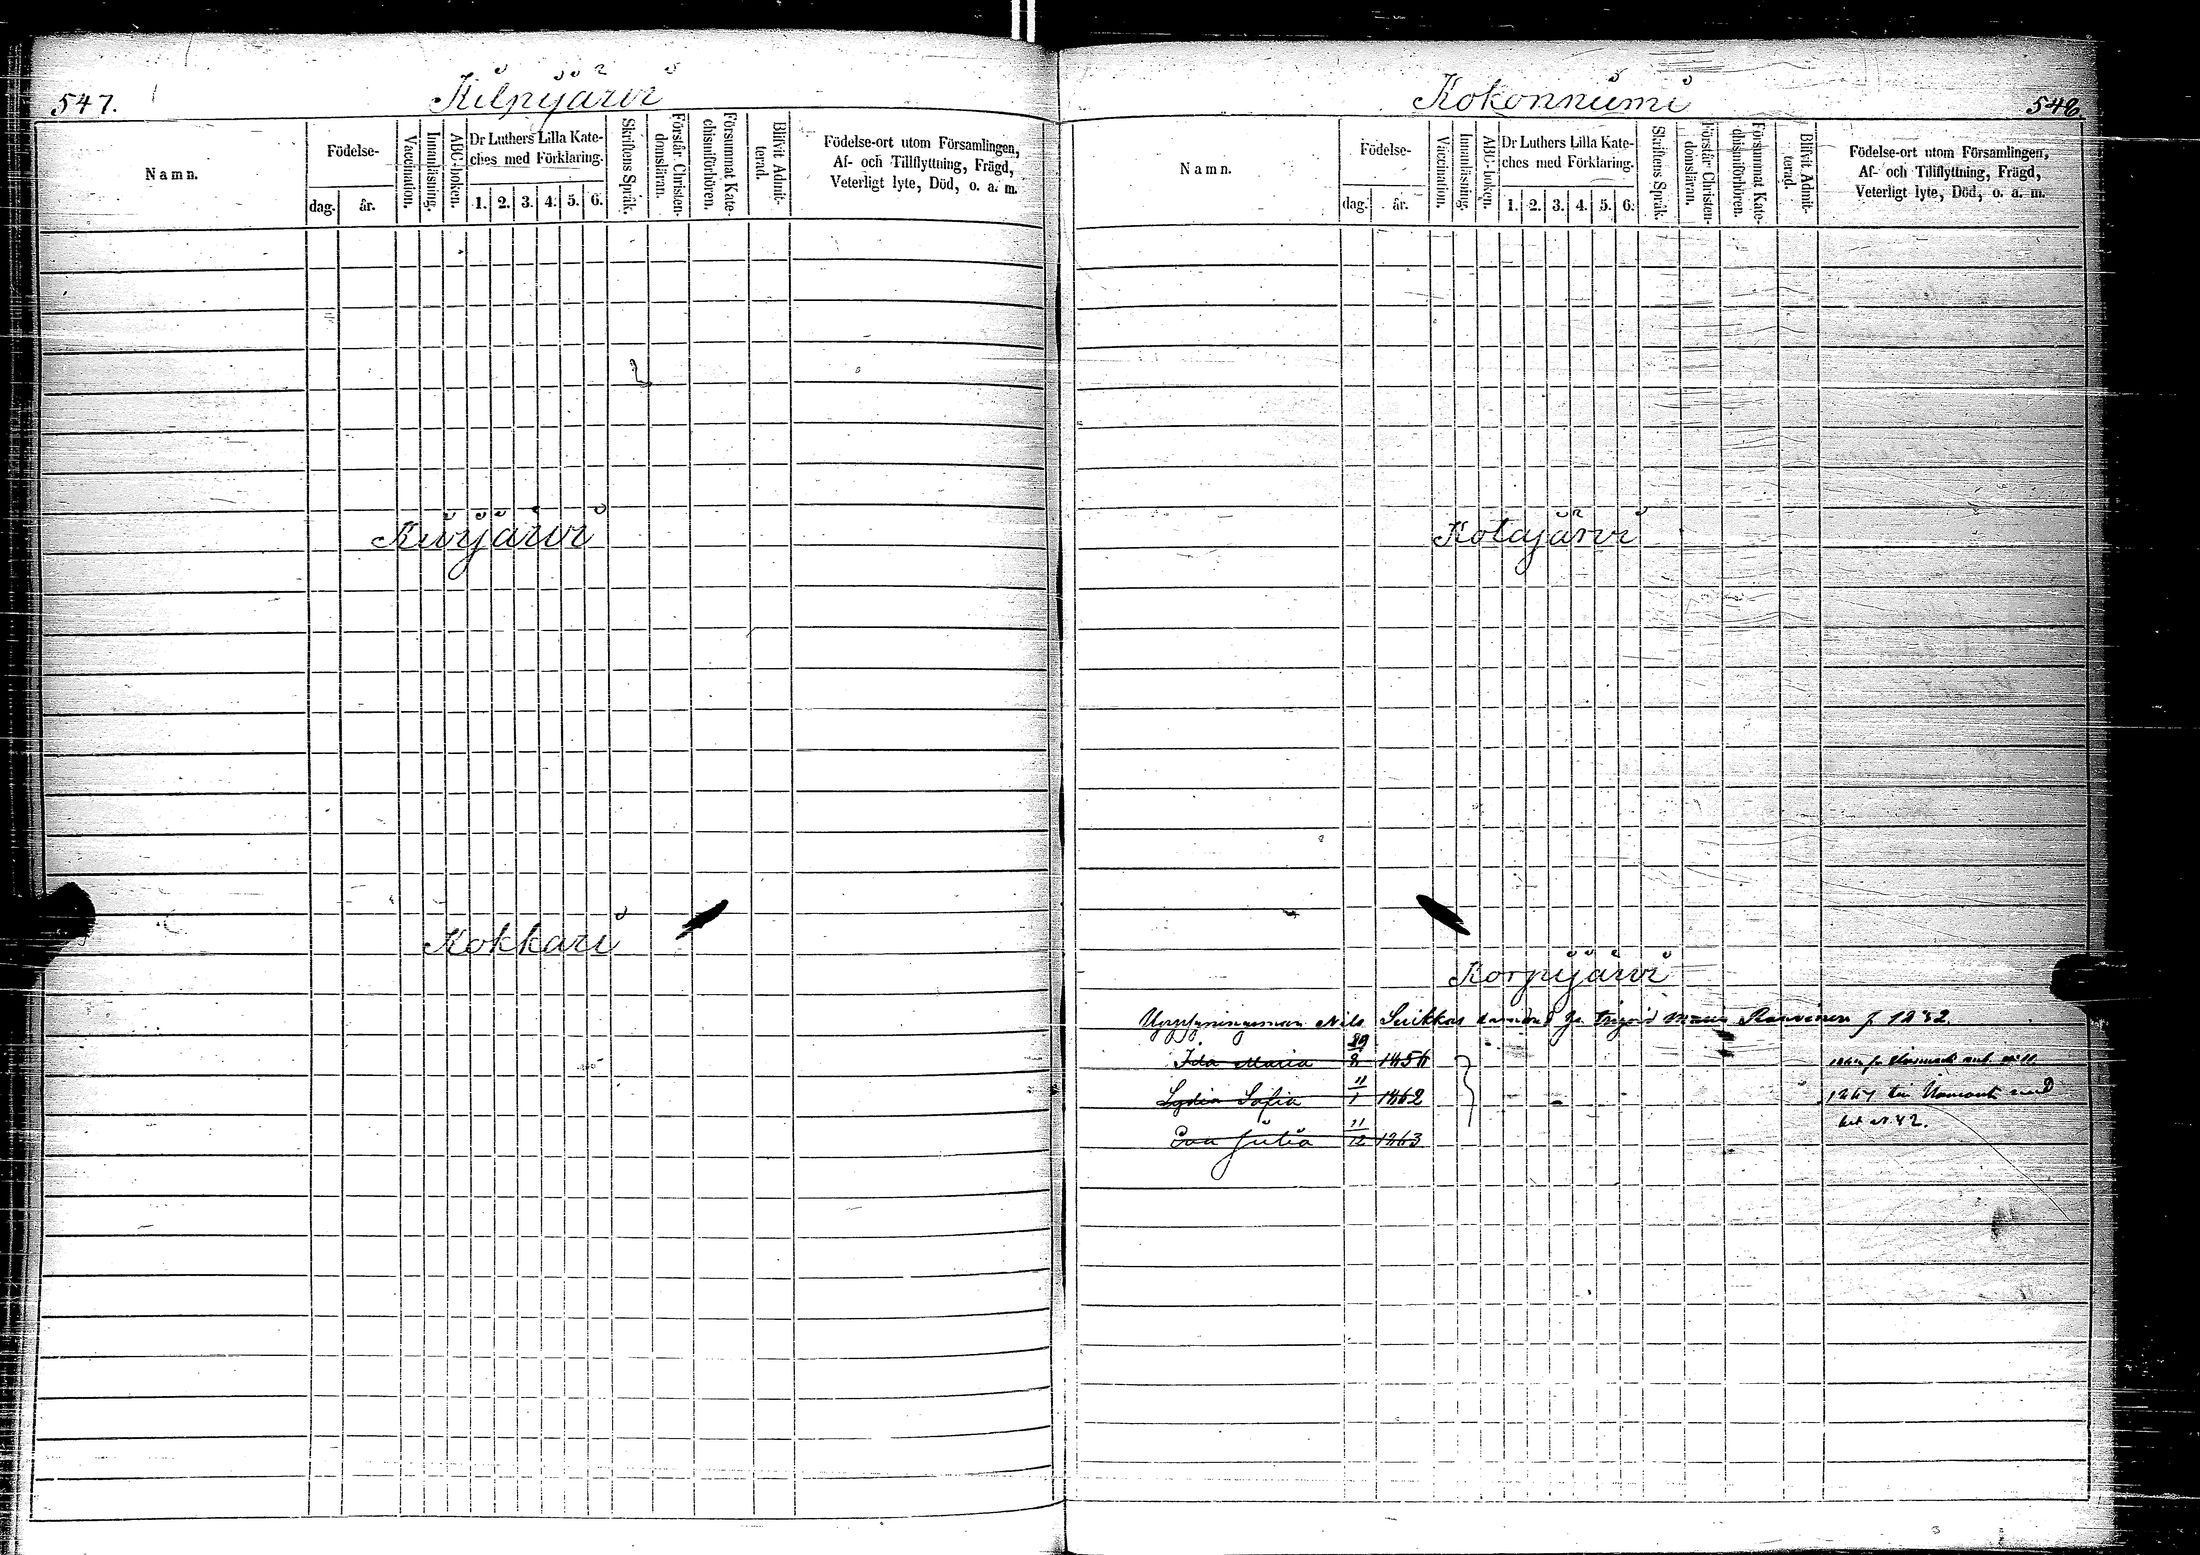 547.
Kilpijärvi
Namn.
Födelse-
dag.
år.
Vaccination.
Innanläsning.
ABC-boken.
Dr Luthers Lilla Kate-
ches med Förklaring.
1. 2. 3. 4. 5. 6.
Skriftens Språk.
Förstår Christen-
domsläran.
Försummat Kate-
chismiförhören.
Blifvit Admit-
terad.
Födelse-ort utom Församlingen,
Af- och Tillflyttning, Frägd,
Veterligt lyte, Död, o. a. m.
Kivijärvi
Kokkari
Kokonniemi
548.
Namn.
Födelse-
dag.
år.
Vaccination.
Innanläsning.
ABC-boken.
Dr Luthers Lilla Kate-
ches med Förklaring.
1. 2. 3. 4. 5. 6.
Skriftens Språk.
Förstår Christen-
domsläran.
Försummat Kate-
chismiförhören.
Blifvit Admit-
terad.
Födelse-ort utom Församlingen,
Af- och Tillflyttning, Frägd,
Veterligt lyte, Död, o. a. m.
Kotajärvi
Korpijärvi
Nils Suikkas Maria f.
Ida Maria 29/8 1856
Lydia Sofia 11/1 1862
Eva Julia 11/12 1863
1867
42.